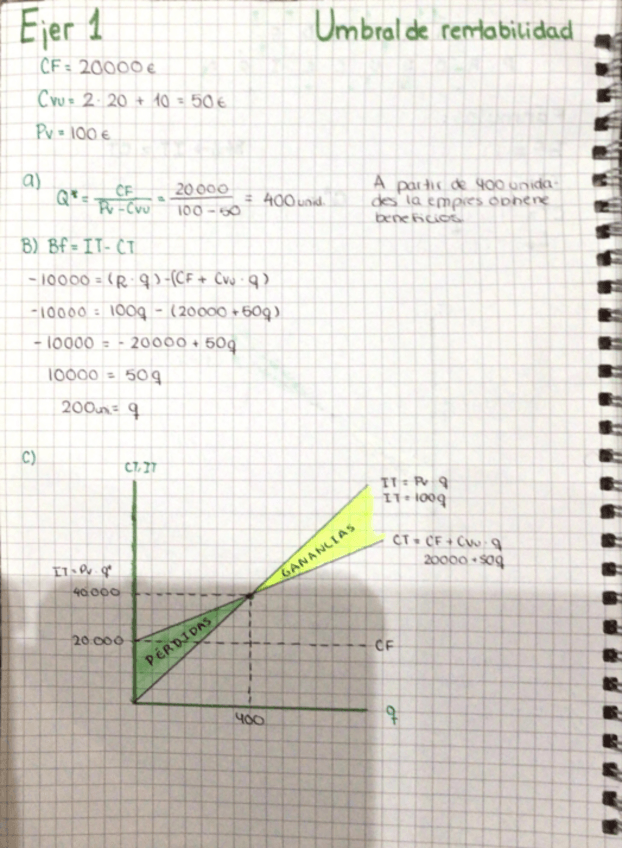 Ejer 1
Umbral de rentabilidad
CF = 20000 €
Cvu = 2 · 20 + 10 = 50 €
Pv = 100 €
a) Q* = CF / Pv - Cvu = 20000 / 100 - 50 = 400 unid.
A partir de 400 unida-
des la empres obtiene
beneficios
B) Bf = IT - CT
-10000 = (P · q) - (CF + Cvu · q)
-10000 = 100q - (20000 + 50q)
-10000 = -20000 + 50q
10000 = 50q
200 un. = q
c)
CT, IT
IT = Pv · q
IT = 100q
GANANCIAS
CT = CF + Cvu · q
20000 + 50q
IT = Pv · q*
40000
PÉRDIDAS
20.000
CF
400
q